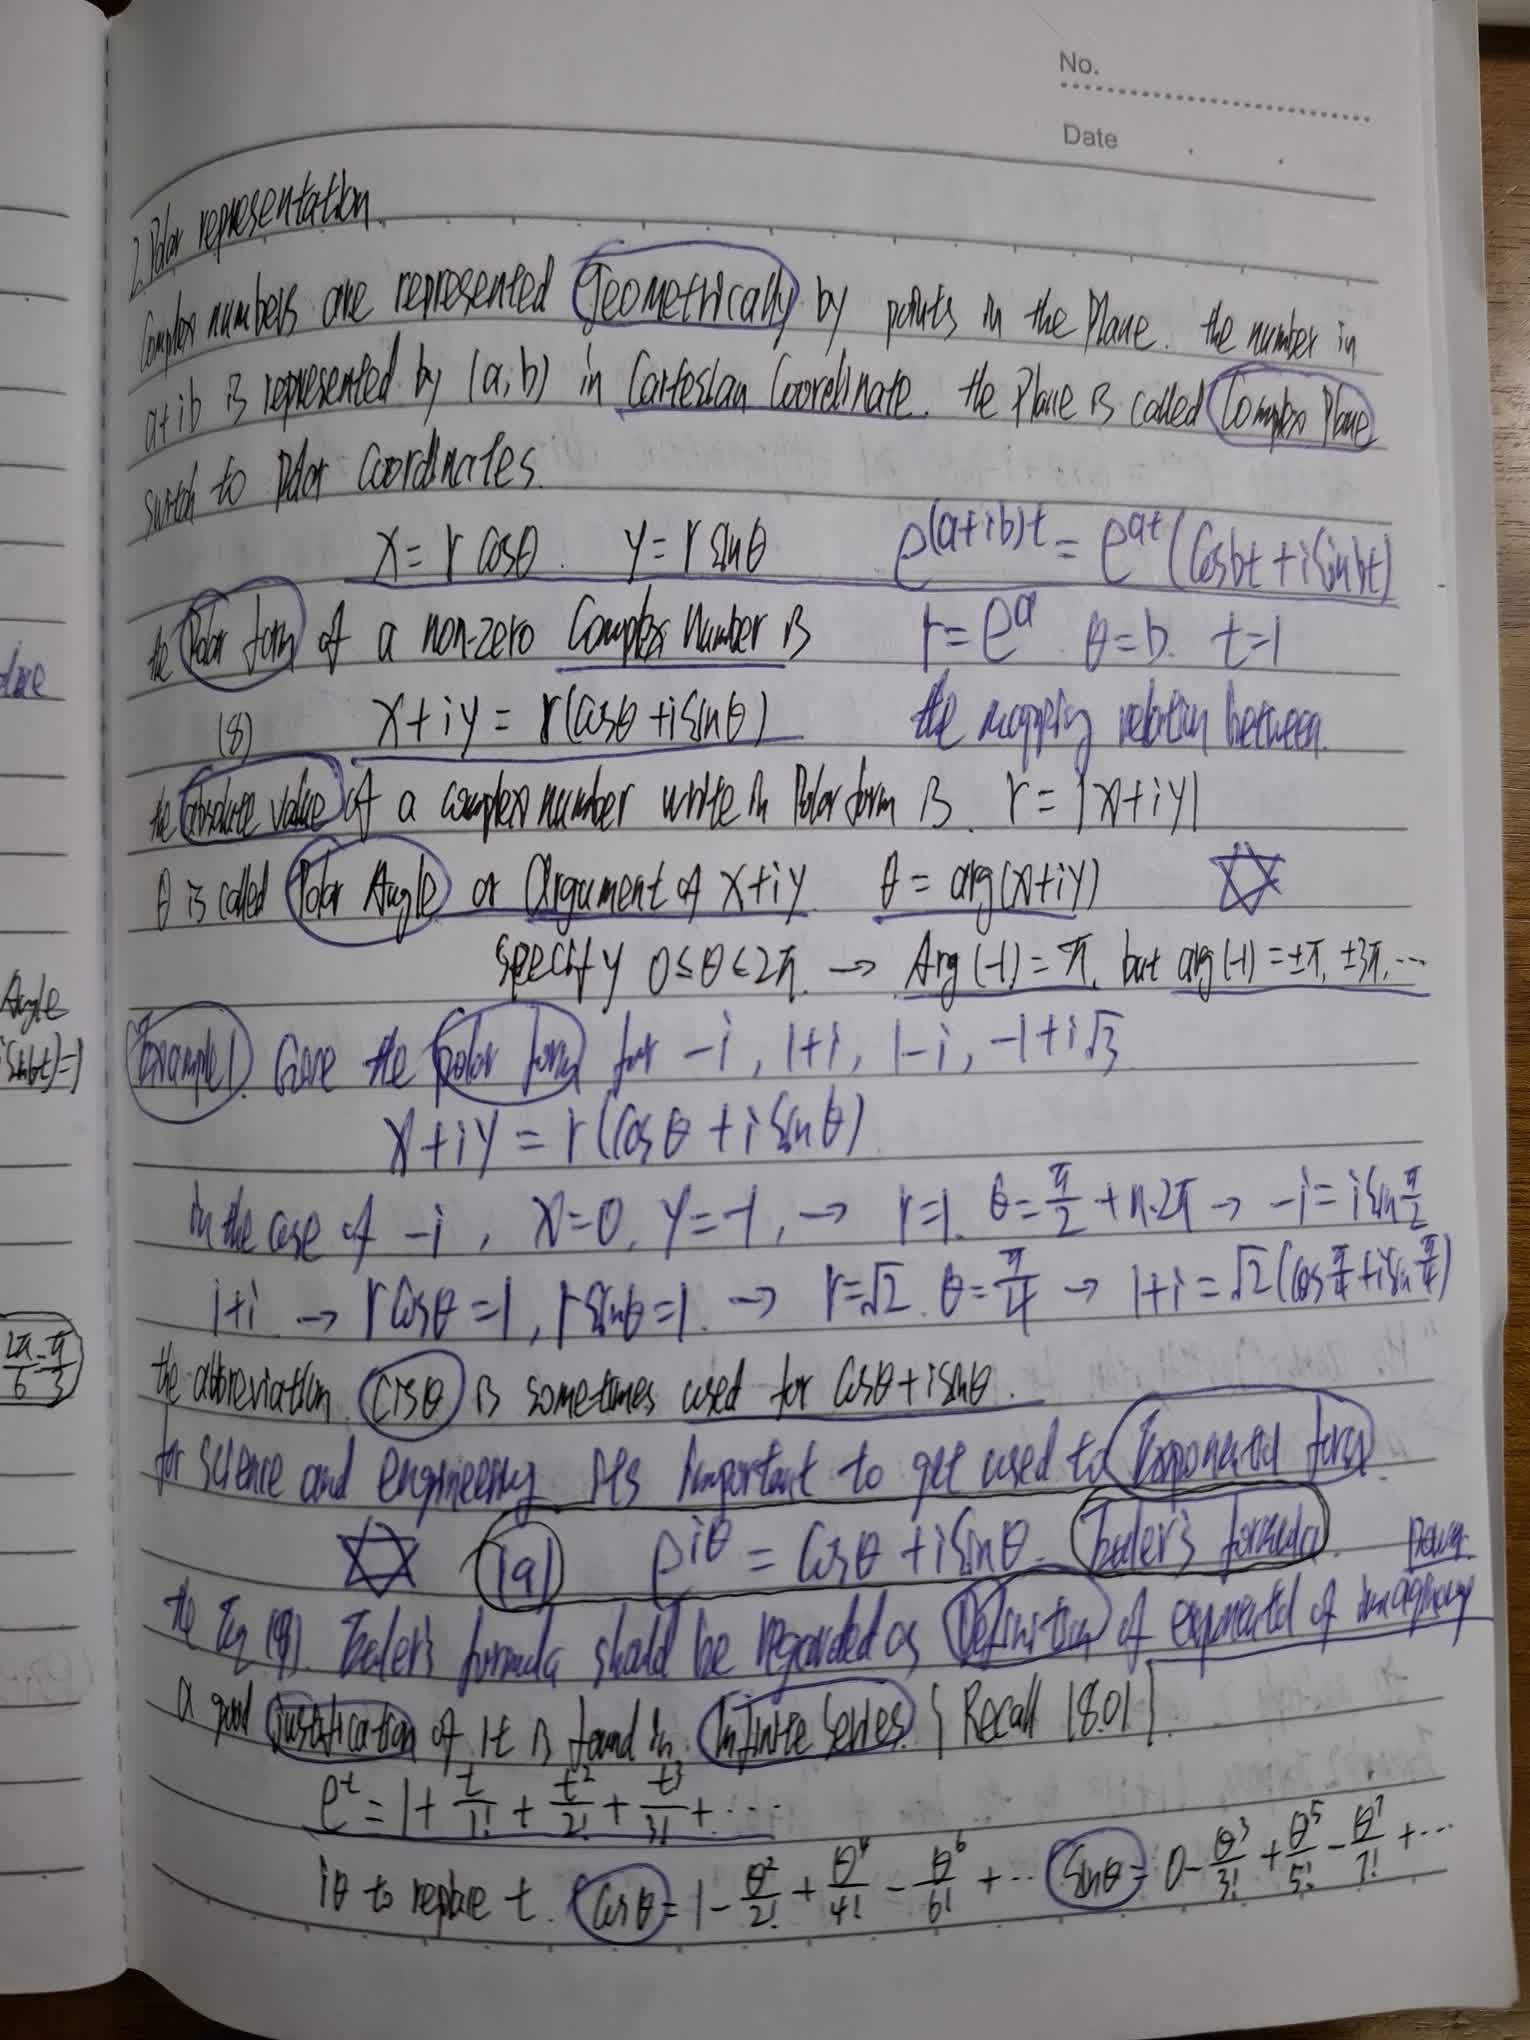 No.
Date
2. Polar representation.
Complex numbers are represented Geometrically by points in the Plane. the number in
a+ib is represented by (a,b) in Cartesian Coordinate. the Plane is called Complex Plane
switch to Polar Coordinates.
x = r cosθ. y = r sinθ e^{(a+ib)t} = e^{at}(cosbt + i sinbt)
the Polar form of a non-zero Complex Number is r = e^a θ = b. t=1
(8) x+iy = r(cosθ + i sinθ) the mapping relation between.
the absolute value of a complex number write in Polar form is. r = |x+iy|
θ is called Polar Angle or argument of x+iy θ = arg(x+iy)
specify 0 ≤ θ < 2π. → Arg(-1) = π. but arg(-1) = ±π, ±3π, ...
Example 1. Give the polar form for -i, 1+i, 1-i, -1+i√3
x+iy = r(cosθ + i sinθ)
in the case of -i, x=0, y=-1, → r=1. θ = π/2 + n·2π → -i = i sin π/2
1+i → r cosθ = 1, r sinθ = 1. → r=√2. θ = π/4 → 1+i = √2(cos π/4 + i sin π/4)
the abbreviation cisθ is sometimes used for cosθ + i sinθ.
for science and engineering its important to get used to Exponential form.
(9) e^{iθ} = cosθ + i sinθ. Euler's formula.
Power.
the Eq (9). Euler's formula should be regarded as Definition of exponential of imaginary
a good justification of it is found in Infinite Series. { Recall 18.01 }.
e^t = 1 + t/1! + t²/2! + t³/3! + ...
iθ to replace t. cosθ = 1 - θ²/2! + θ⁴/4! - θ⁶/6! + ... sinθ = θ - θ³/3! + θ⁵/5! - θ⁷/7! + ...
Angle
i sinbt) = 1
2π/6 = π/3